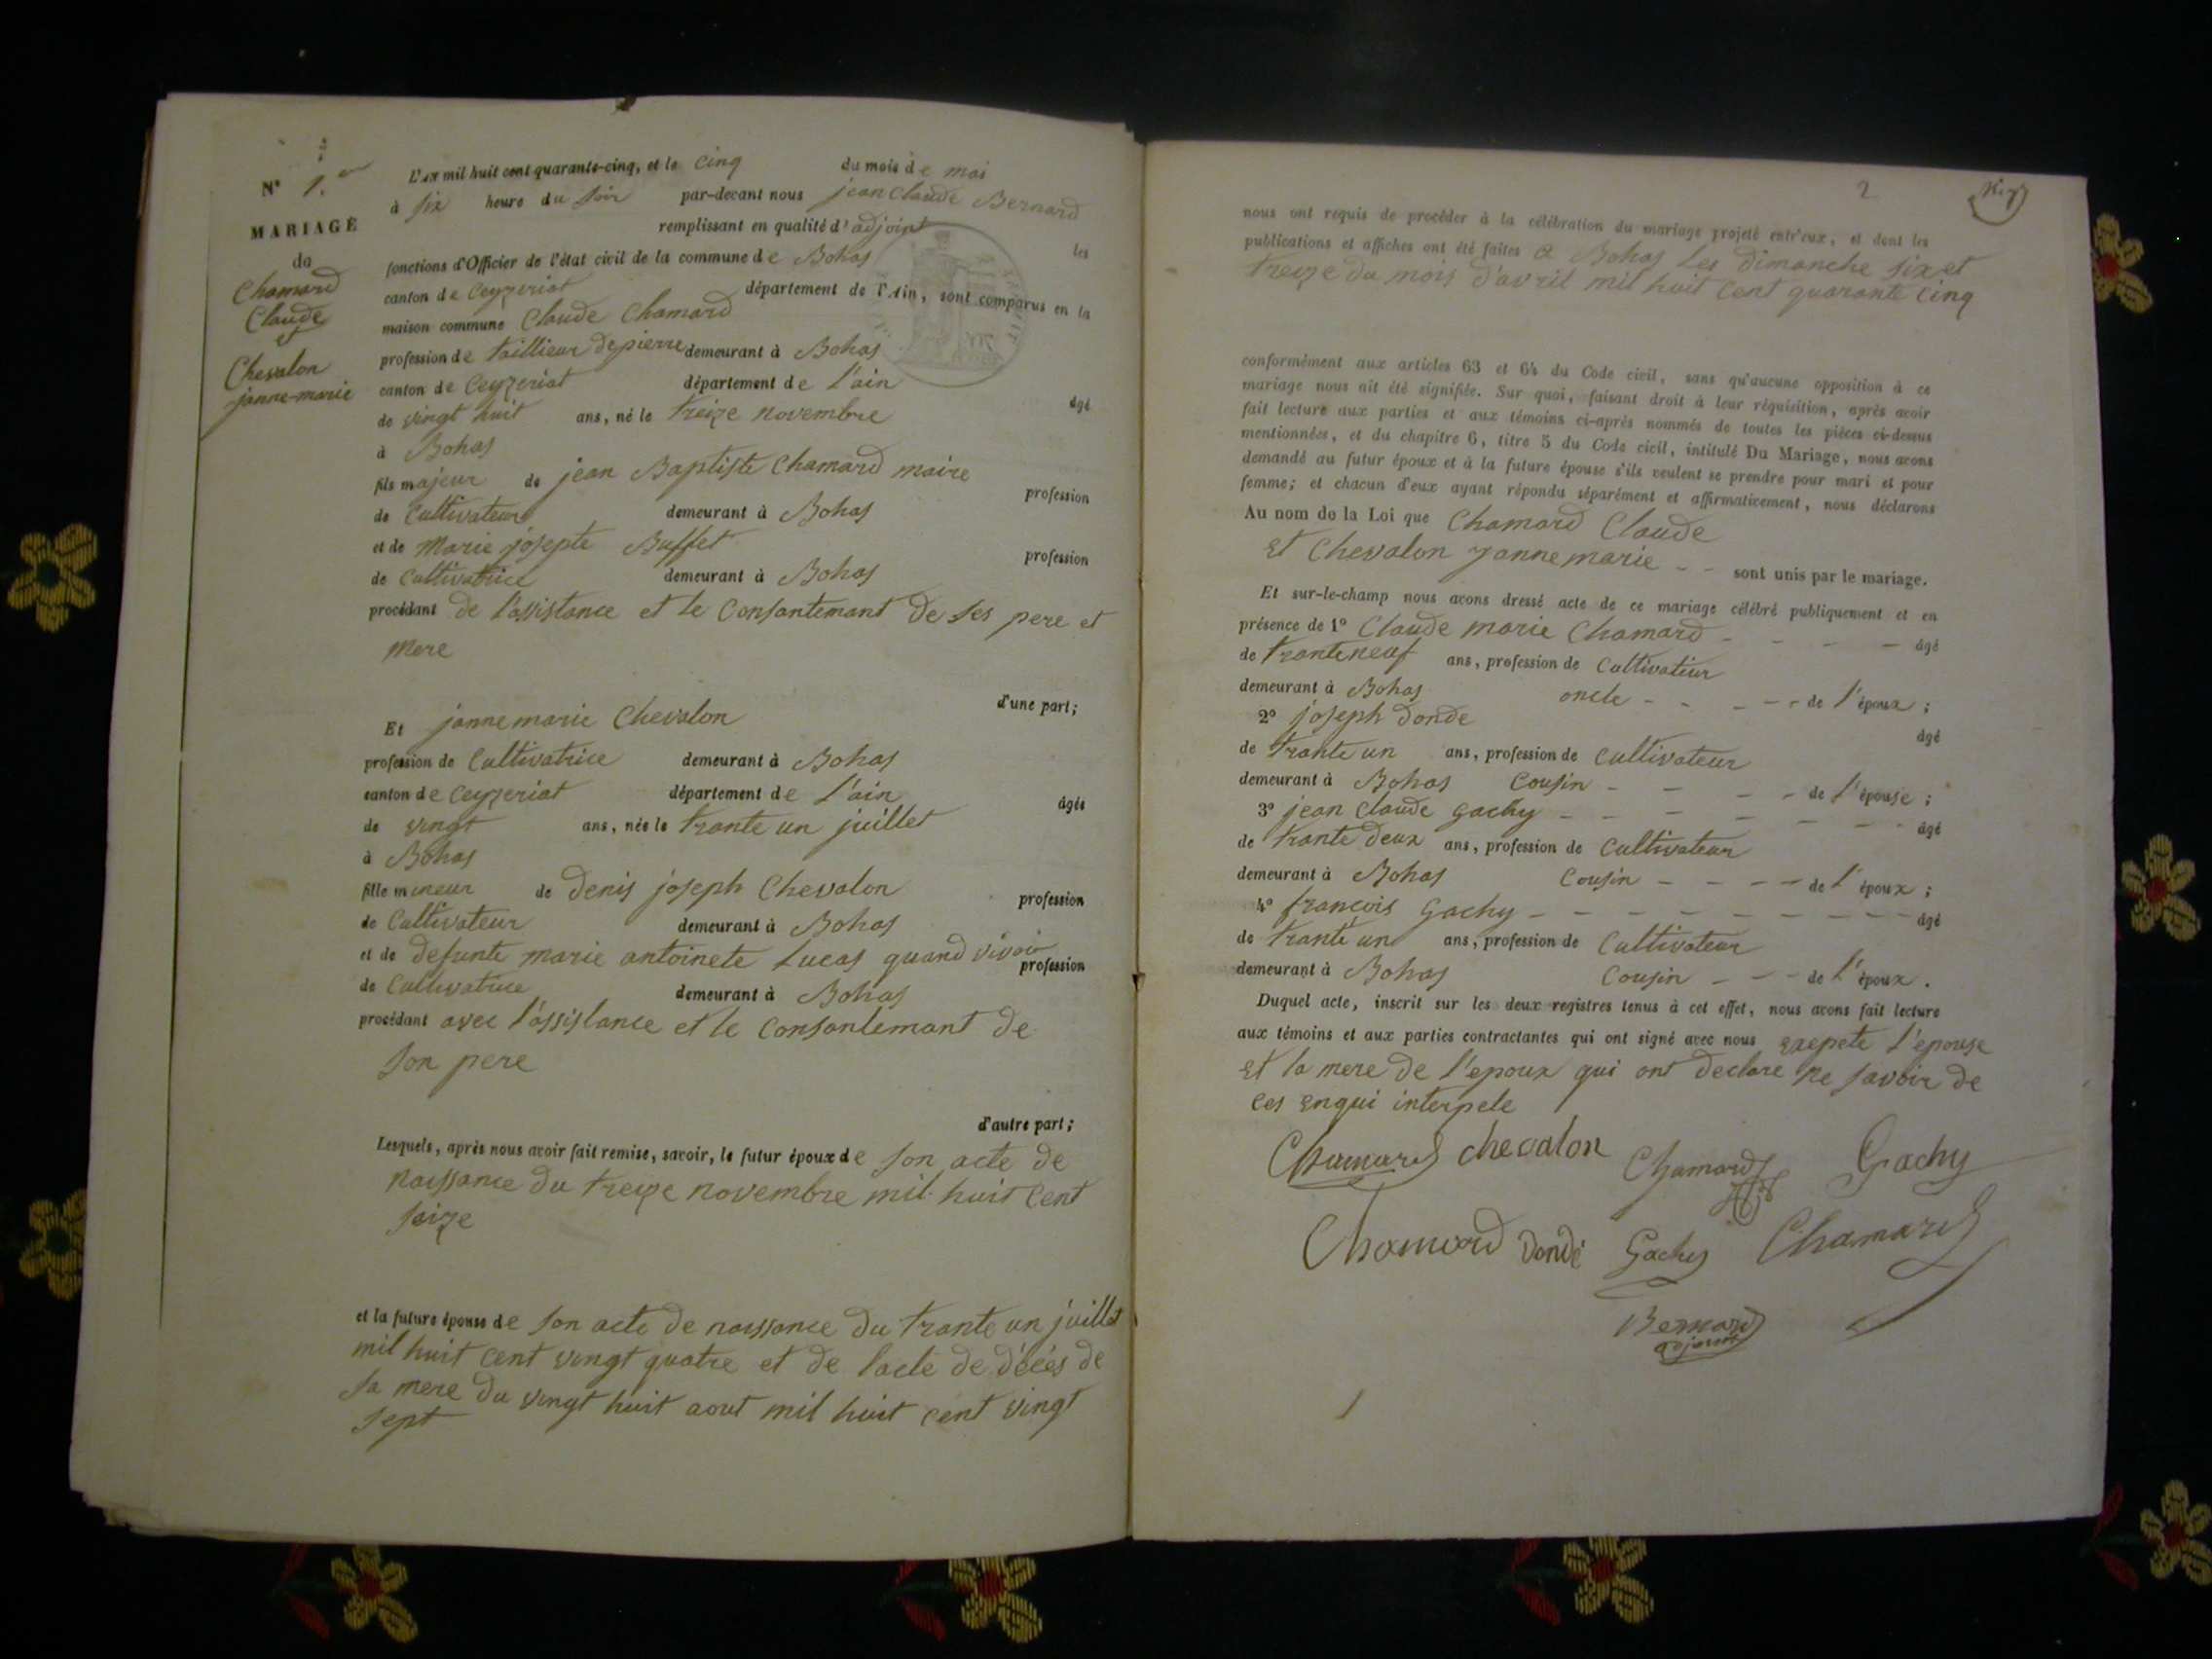 N° 1.er
MARIAGE
de
Chamard
Claude
et
Chevalon
janne-marie
L'AN mil huit cent quarante-cinq, et le cinq du mois de mai
à six heure du soir par-devant nous jean claude Bernard
remplissant en qualité d'adjoint les
fonctions d'Officier de l'état civil de la commune de Bohas
canton de Ceyzeriat département de l'Ain, sont comparus en la
maison commune Claude Chamard
profession de taillieur de pierre demeurant à Bohas
canton de Ceyzeriat département de l'ain âgé
de vingt huit ans, né le treize novembre
à Bohas
fils majeur de jean Baptiste Chamard maire profession
de Cultivateur demeurant à Bohas
et de Marie josepte Buffet profession
de Cultivatrice demeurant à Bohas
procédant de l'assistance et le consantemant de ses pere et
mere
d'une part;
Et janne marie Chevalon
profession de Cultivatrice demeurant à Bohas
canton de Ceyzeriat département de l'ain âgée
de vingt ans, née le trante un juillet
à Bohas
fille mineur de Denis joseph Chevalon profession
de Cultivateur demeurant à Bohas
et de defunte marie antoinete Lucas quand vivoir profession
de Cultivatrice demeurant à Bohas
procédant avec l'assistance et le consontemant de
son pere
d'autre part;
Lesquels, après nous avoir fait remise, savoir, le futur époux de son acte de
naissance du treize novembre mil huit cent
saize
et la future épouse de son acte de naissance du trante un juillet
mil huit cent vingt quatre et de lacte de décés de
sa mere du vingt huit aout mil huit cent vingt
sept
2
nous ont requis de procéder à la célébration du mariage projeté entr'eux, et dont les
publications et affiches ont été faites a Bohas les dimanche six et
treize du mois d'avril mil huit cent quarante cinq
conformément aux articles 63 et 64 du Code civil, sans qu'aucune opposition à ce
mariage nous ait été signifiée. Sur quoi, faisant droit à leur réquisition, après avoir
fait lecture aux parties et aux témoins ci-après nommés de toutes les pièces ci-dessus
mentionnées, et du chapitre 6, titre 5 du Code civil, intitulé Du Mariage, nous avons
demandé au futur époux et à la future épouse s'ils veulent se prendre pour mari et pour
femme; et chacun d'eux ayant répondu séparément et affirmativement, nous déclarons
Au nom de la Loi que Chamard Claude
et Chevalon janne marie - - sont unis par le mariage.
Et sur-le-champ nous avons dressé acte de ce mariage célébré publiquement et en
présence de 1° Claude marie Chamard - - - - âgé
de tranteneuf ans, profession de Cultivateur
demeurant à Bohas oncle - - - - - de l'époux;
2° joseph donde âgé
de trante un ans, profession de cultivateur
demeurant à Bohas Cousin - - - - de l'épouse;
3° jean claude gachy - - - - - - - - âgé
de trante deux ans, profession de Cultivateur
demeurant à Bohas Cousin - - - - de l'époux;
4° francois Gachy - - - - - - - - - âgé
de trante un ans, profession de Cultivateur
demeurant à Bohas Cousin - - - de l'époux.
Duquel acte, inscrit sur les deux registres tenus à cet effet, nous avons fait lecture
aux témoins et aux parties contractantes qui ont signé avec nous exepete l'epouse
et la mere de l'epoux qui ont declare ne savoir de
ces enqui interpele
Chamard chevalon Chamard Gachy
Chamard Dondé Gachy Chamard
Bernard
adjoint